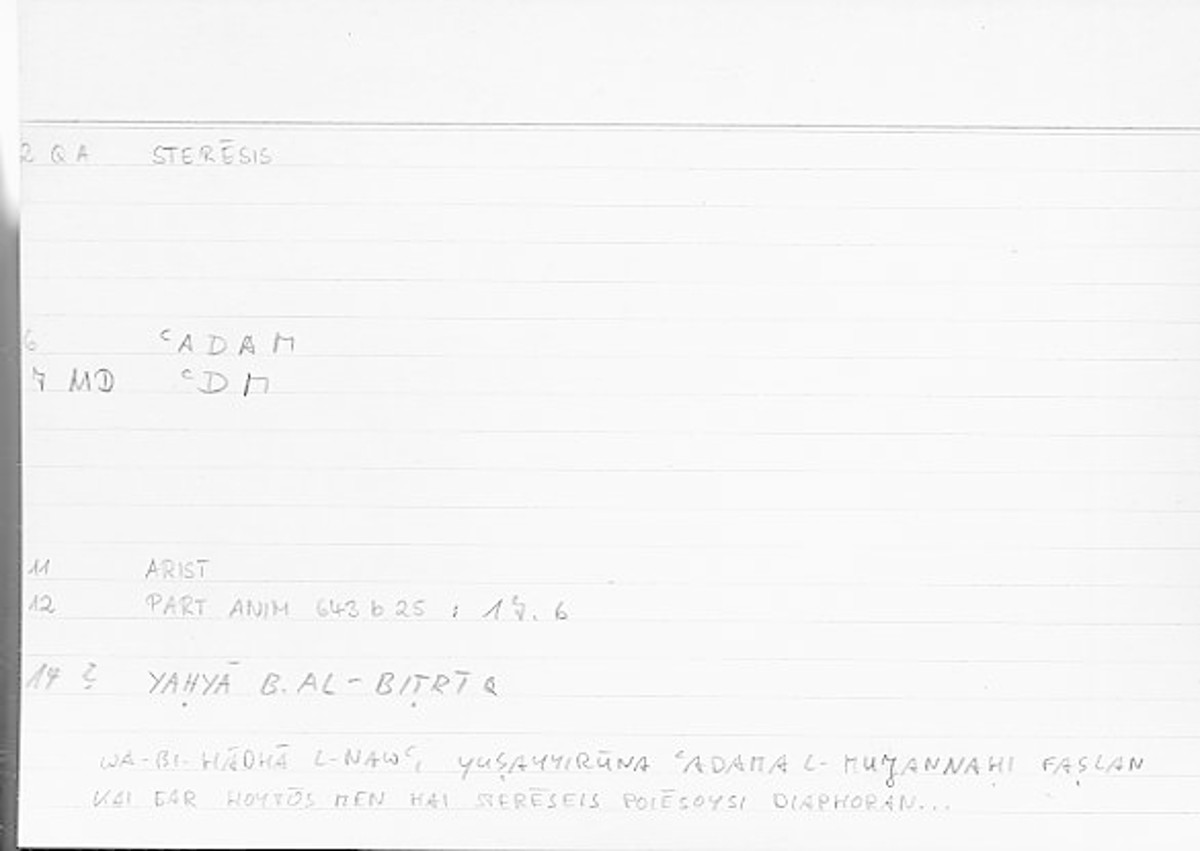 2 QA STERĒSIS
6 ʿADAM
7 MD ʿDM
11 ARIST
12 PART ANIM 643 b 25 : 17. 6
YAḤYĀ B. AL-BIṬRĪQ
WA-BI-HĀDHĀ L-NAWʿI YUṢAYYIRŪNA ʿADAMA L-MUJANNAḤI FAṢLAN
KAI GAR HOYTŌS MEN HAI STERĒSEIS POIĒSOYSI DIAPHORAN...